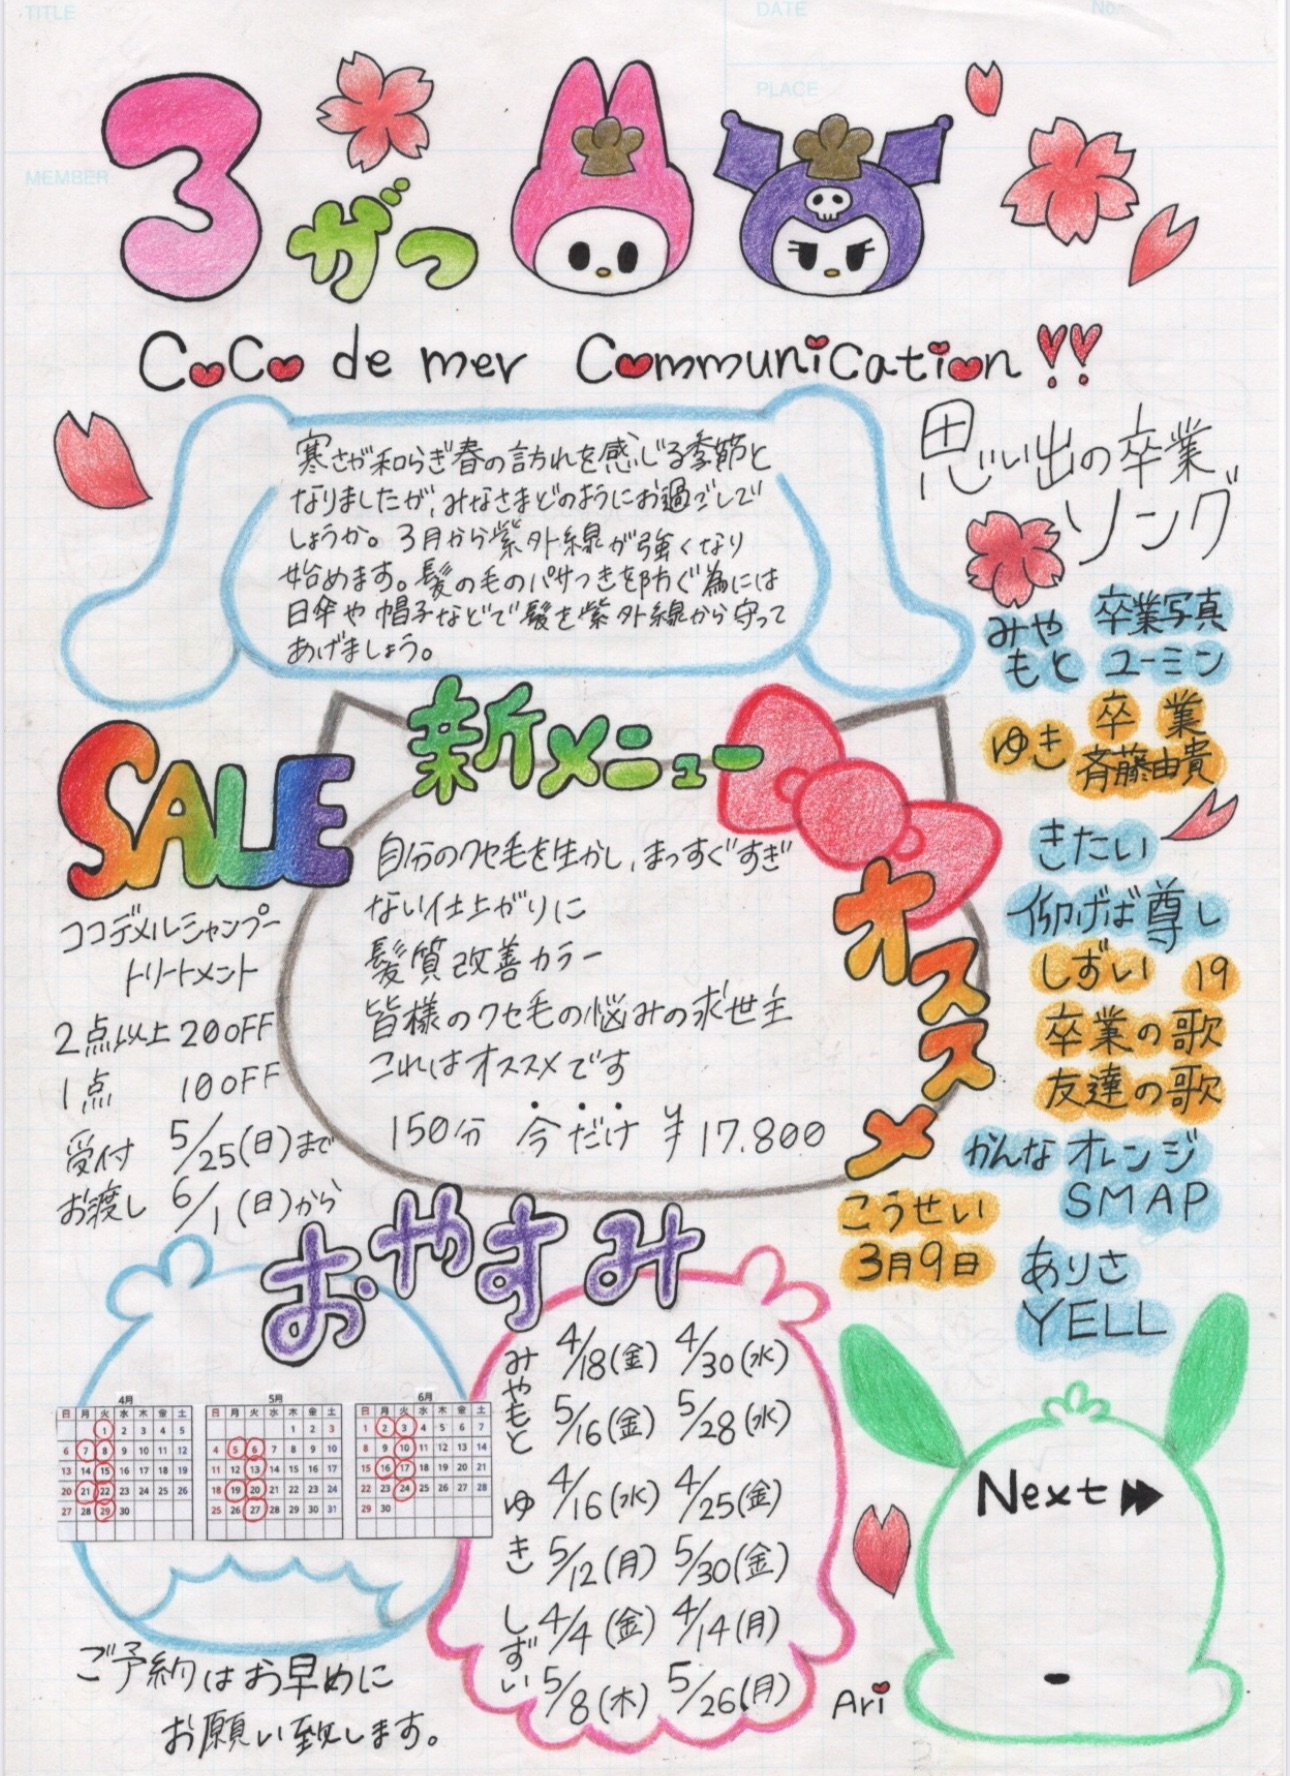 TITLE
DATE
No.
PLACE
MEMBER
3がつ
CoCo de mer Communication!!
寒さが和らぎ春の訪れを感じる季節と
なりましたが、みなさまどのようにお過ごしで
しょうか。3月から紫外線が強くなり
始めます。髪の毛のパサつきを防ぐ為には
日傘や帽子などで髪を紫外線から守って
あげましょう。
思い出の卒業
ソング
みやもと 卒業写真
ユーミン
ゆき 卒業
斉藤由貴
きたい
仰げば尊し
しずい 19
卒業の歌
友達の歌
かんな オレンジ
SMAP
こうせい
3月9日
ありさ
YELL
SALE
ココデメルシャンプー
トリートメント
2点以上 20OFF
1点 10OFF
受付 5/25(日)まで
お渡し 6/1(日)から
新メニュー
オススメ
自分のクセ毛を生かし、まっすぐすぎ
ない仕上がりに
髪質改善カラー
皆様のクセ毛の悩みの求世主
これはオススメです
150分 今だけ ¥17.800
おやすみ
4月
日 月 火 水 木 金 土
1 2 3 4 5
6 7 8 9 10 11 12
13 14 15 16 17 18 19
20 21 22 23 24 25 26
27 28 29 30
5月
日 月 火 水 木 金 土
1 2 3
4 5 6 7 8 9 10
11 12 13 14 15 16 17
18 19 20 21 22 23 24
25 26 27 28 29 30 31
6月
日 月 火 水 木 金 土
1 2 3 4 5 6 7
8 9 10 11 12 13 14
15 16 17 18 19 20 21
22 23 24 25 26 27 28
29 30
みやもと
4/18(金) 4/30(水)
5/16(金) 5/28(水)
ゆき
4/16(水) 4/25(金)
5/12(月) 5/30(金)
しずい
4/4(金) 4/14(月)
5/8(木) 5/26(月)
ご予約はお早めに
お願い致します。
Next
Ari